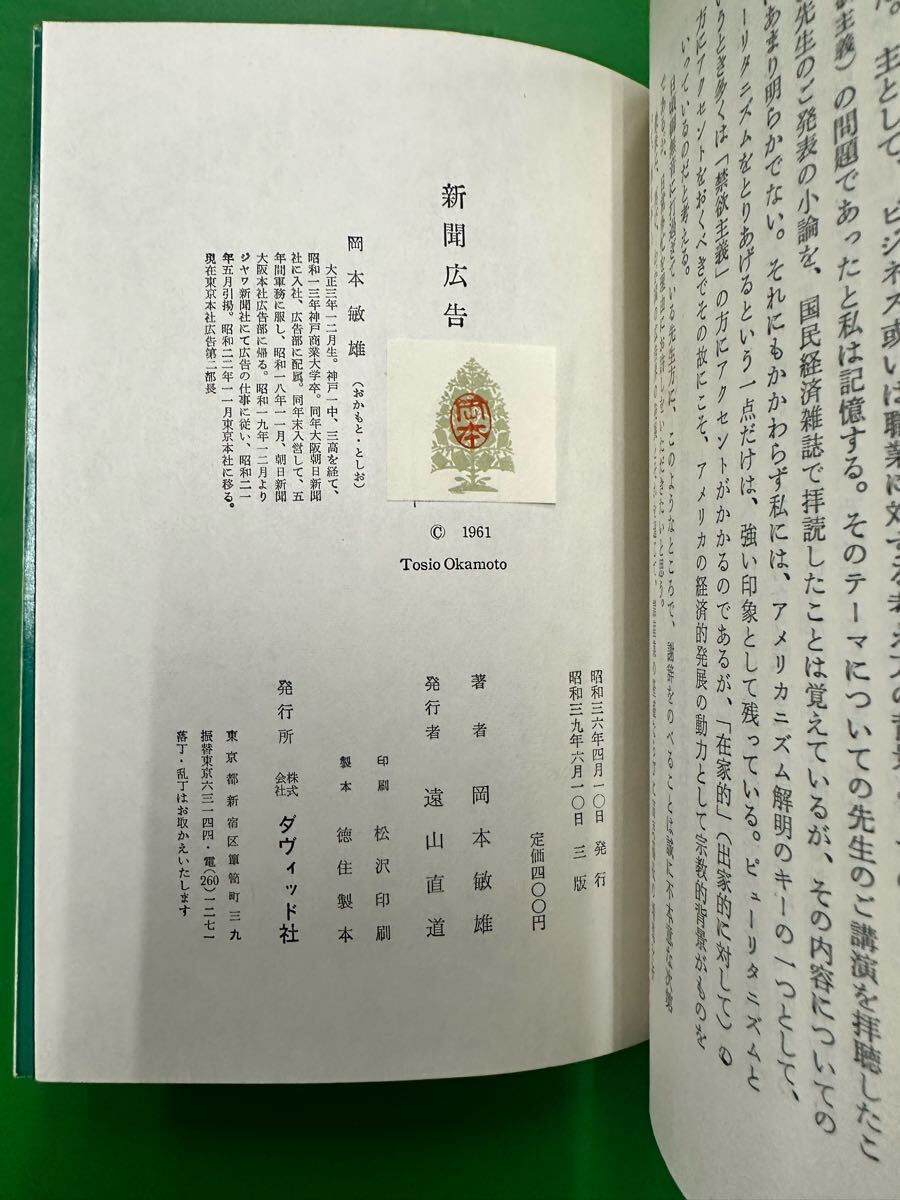 主として、ビジネス或いは職業に対する考え方の背景
主義）の問題であったと私は記憶する。そのテーマについての先生のご講演を拝聴したこ
先生のご発表の小論を、国民経済雑誌で拝読したことは覚えているが、その内容についての
あまり明らかでない。それにもかかわらず私には、アメリカニズム解明のキーの一つとして、
ーリタニズムをとりあげるという一点だけは、強い印象として残っている。ピューリタニズムと
いうとき多くは「禁欲主義」の方にアクセントがかかるのであるが、「在家的」（出家的に対して）の
方にアクセントをおくべきでその故にこそ、アメリカの経済的発展の動力として宗教的背景がものを
いっているのだと考える。
打過ぎている先生方に、このようなところで、謝辞をのべることは誠に不本意な次第
いただきたいと思う。
新聞広告
岡本敏雄（おかもと・としお）
大正三年一二月生。神戸一中、三高を経て、
昭和一三年神戸商業大学卒。同年大阪朝日新聞
社に入社、広告部に配属。同年末入営して、五
年間軍務に服し、昭和一八年一一月、朝日新聞
大阪本社広告部に帰る。昭和一九年一二月より
ジャワ新聞社にて広告の仕事に従い、昭和二一
年五月引揚。昭和二二年一一月東京本社に移る。
現在東京本社広告第二部長
岡本
© 1961
Tosio Okamoto
昭和三六年四月一〇日 発行
昭和三九年六月一〇日 三版
定価四〇〇円
著者 岡本敏雄
発行者 遠山直道
印刷 松沢印刷
製本 徳住製本
発行所 株式会社 ダヴィッド社
東京都新宿区簞笥町三九
振替東京六三一四四・電(260)一二七一
落丁・乱丁はお取かえいたします